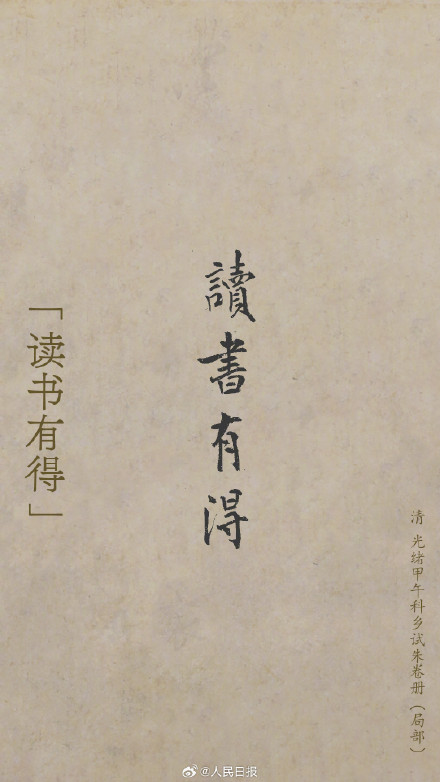 清 光绪甲午科乡试朱卷册（局部）
讀書有得
「读书有得」
@人民日报